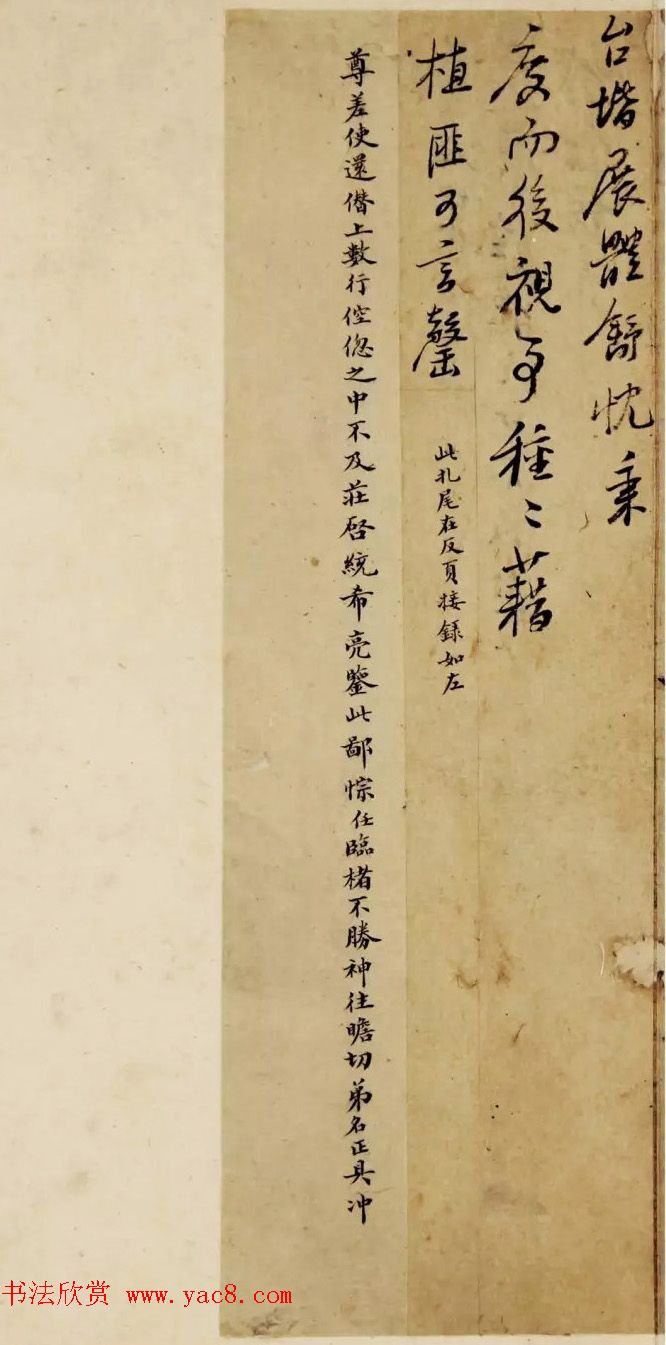 台堦展體舒忱秉
度而後視事種〻藉
植匪可言罄
此扎尾在反頁接錄如左
尊差使還僭上數行倥偬之中不及莊啓統希亮鑒此鄙悰任臨楮不勝神往瞻切弟名正具冲
书法欣赏 www.yac8.com